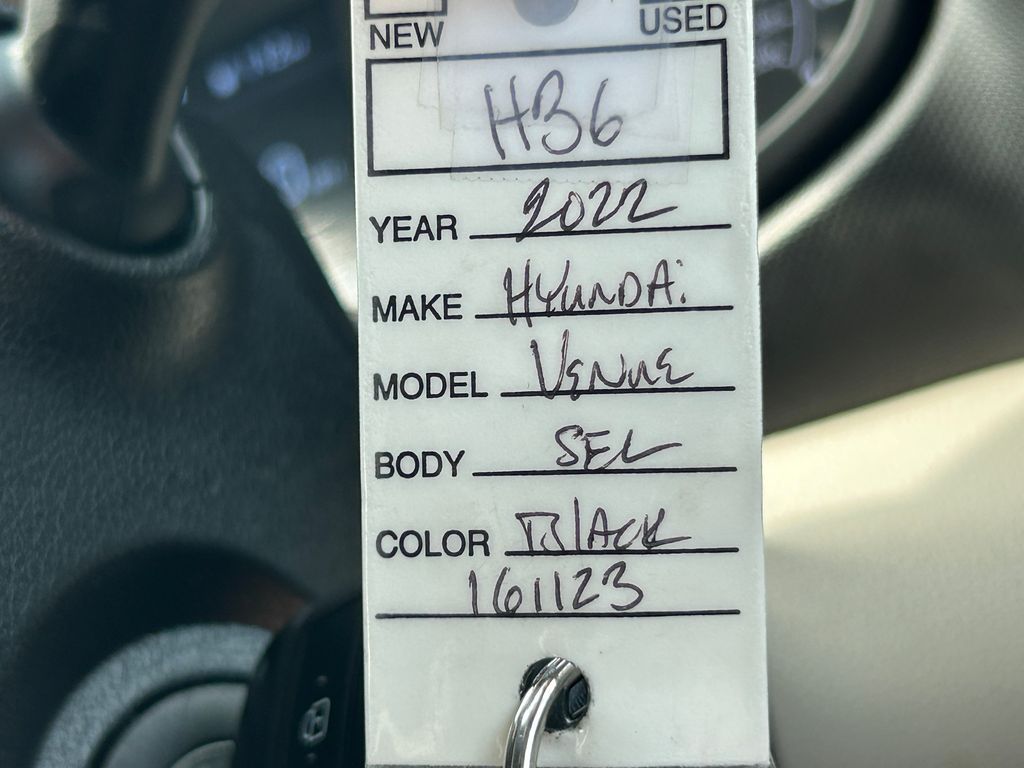 NEW USED
H36
YEAR 2022
MAKE HYUNDAi
MODEL VENUE
BODY SEL
COLOR BlACK
161123